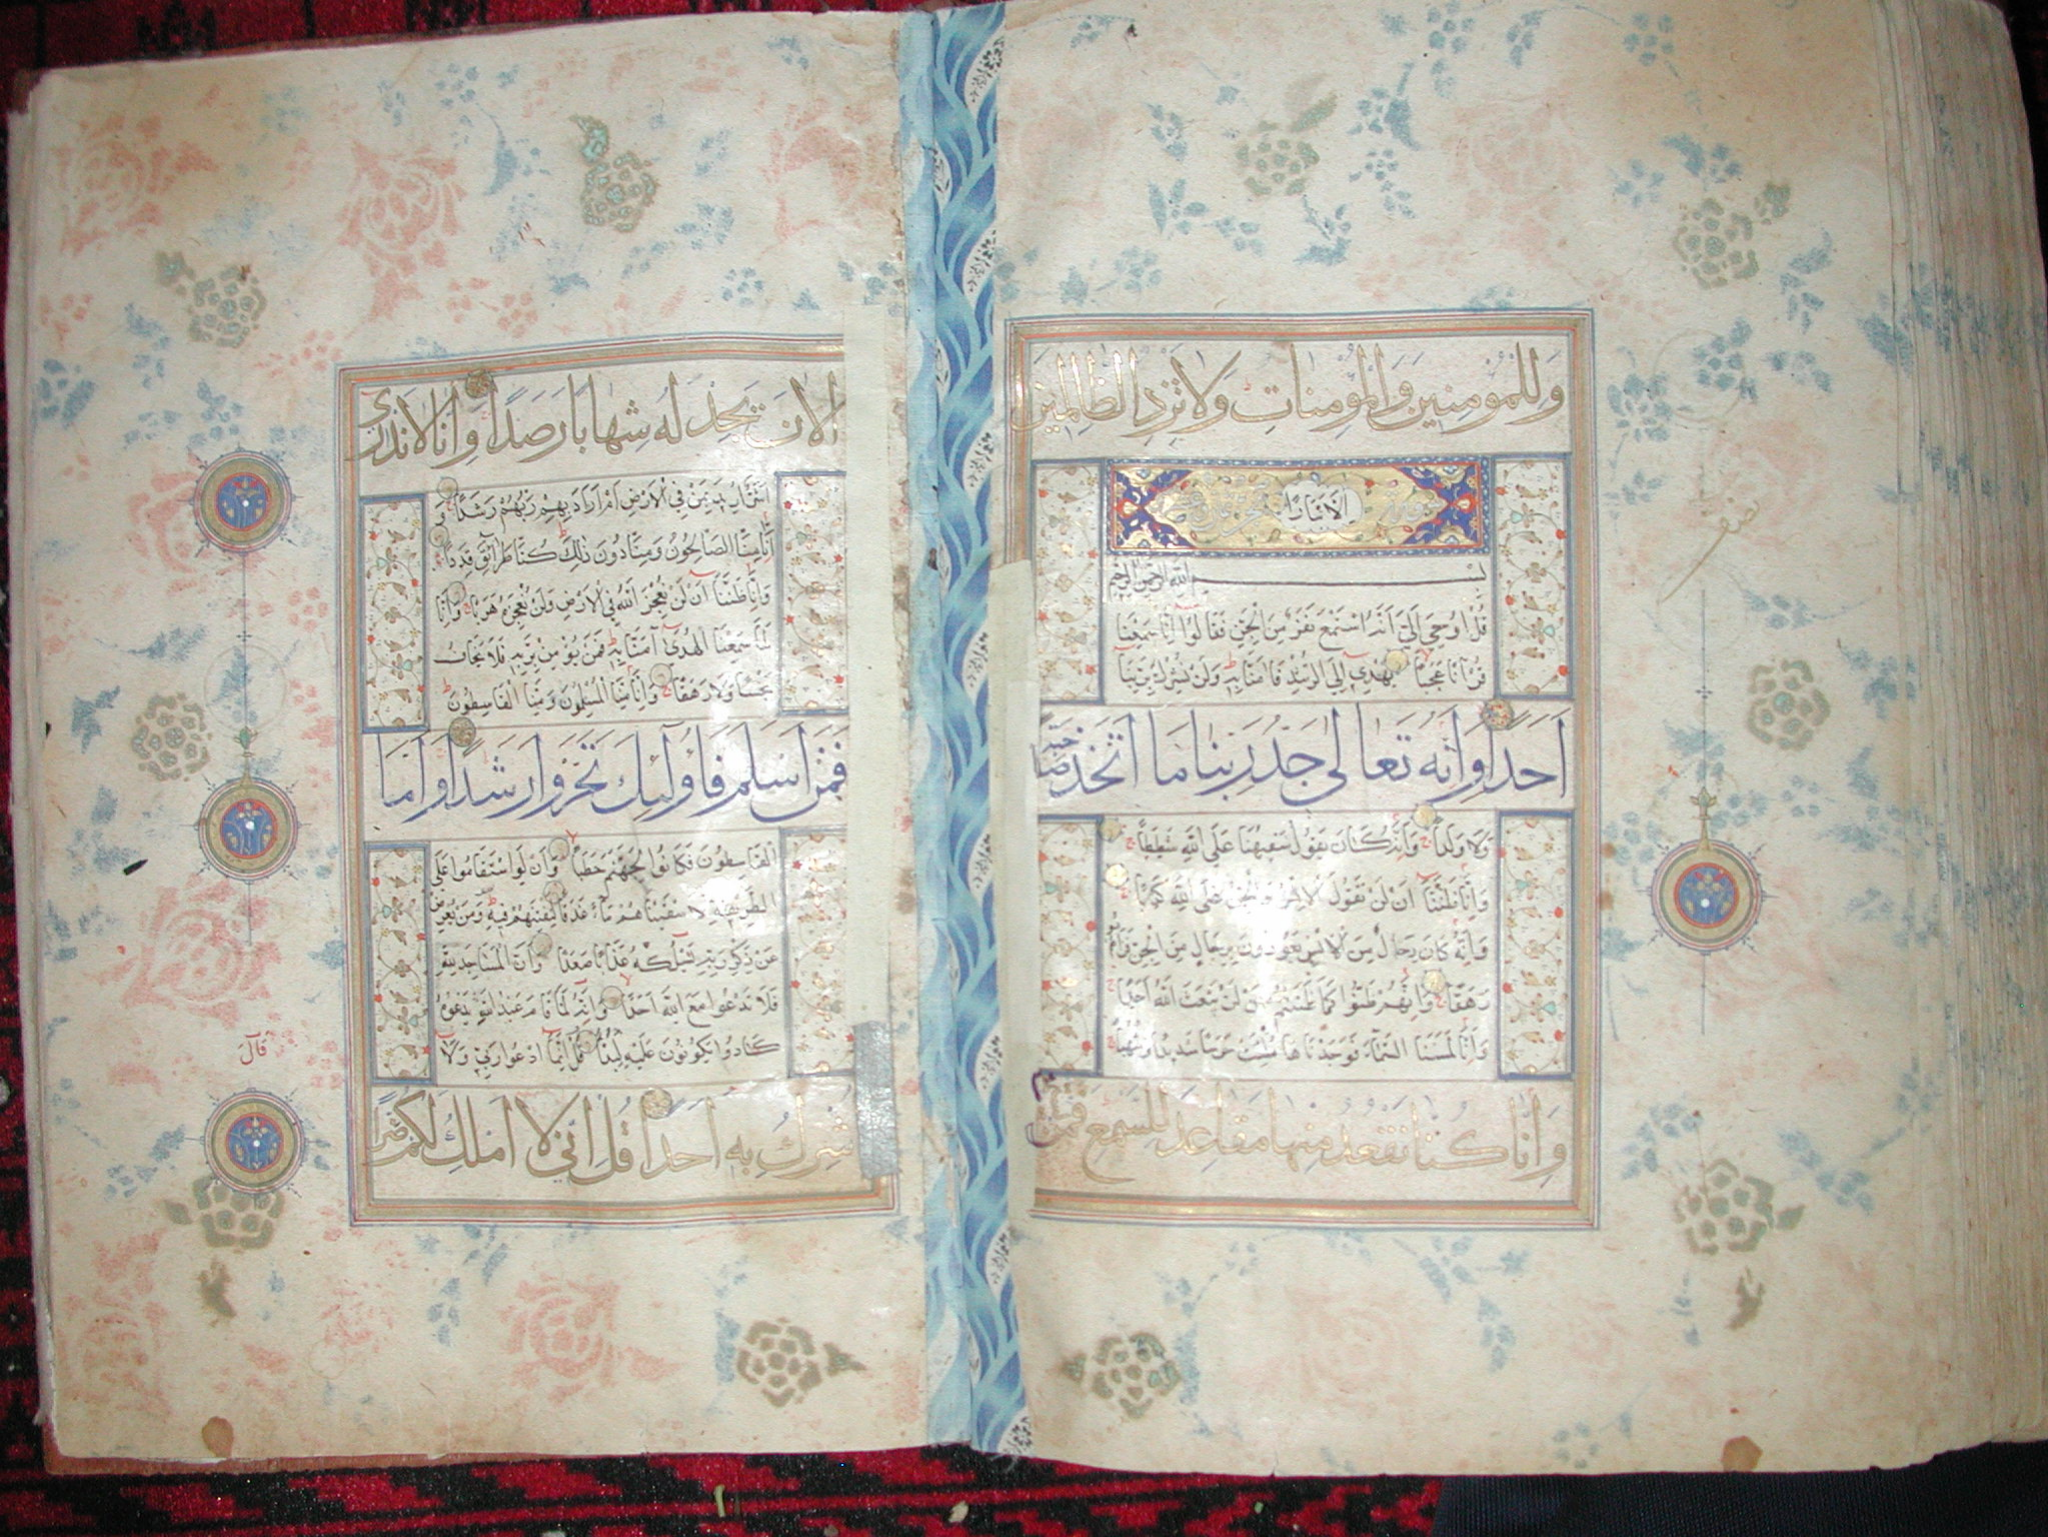 وَلِلْمُؤْمِنِينَ وَالْمُؤْمِنَاتِ وَلَا تَزِدِ الظَّالِمِينَ
اِلَّا تَبَارًا
بِسْمِ اللَّهِ الرَّحْمَنِ الرَّحِيمِ
قُلْ اُوحِيَ اِلَيَّ اَنَّهُ اسْتَمَعَ نَفَرٌ مِنَ الْجِنِّ فَقَالُوا اِنَّا سَمِعْنَا
قُرْآنًا عَجَبًا يَهْدِي اِلَى الرُّشْدِ فَآمَنَّا بِهِ وَلَنْ نُشْرِكَ بِرَبِّنَا
اَحَدًا وَاَنَّهُ تَعَالَى جَدُّ رَبِّنَا مَا اتَّخَذَ صَاحِبَةً
وَلَا وَلَدًا وَاَنَّهُ كَانَ يَقُولُ سَفِيهُنَا عَلَى اللَّهِ شَطَطًا
وَاَنَّا ظَنَنَّا اَنْ لَنْ تَقُولَ الْاِنْسُ وَالْجِنُّ عَلَى اللَّهِ كَذِبًا
وَاَنَّهُ كَانَ رِجَالٌ مِنَ الْاِنْسِ يَعُوذُونَ بِرِجَالٍ مِنَ الْجِنِّ فَزَادُوهُمْ
رَهَقًا وَاَنَّهُمْ ظَنُّوا كَمَا ظَنَنْتُمْ اَنْ لَنْ يَبْعَثَ اللَّهُ اَحَدًا
وَاَنَّا لَمَسْنَا السَّمَاءَ فَوَجَدْنَاهَا مُلِئَتْ حَرَسًا شَدِيدًا وَشُهُبًا
وَاَنَّا كُنَّا نَقْعُدُ مِنْهَا مَقَاعِدَ لِلسَّمْعِ فَمَنْ
نصف
الْآنَ يَجِدْ لَهُ شِهَابًا رَصَدًا وَاَنَّا لَا نَدْرِي
اَشَرٌّ اُرِيدَ بِمَنْ فِي الْاَرْضِ اَمْ اَرَادَ بِهِمْ رَبُّهُمْ رَشَدًا وَ
اَنَّا مِنَّا الصَّالِحُونَ وَمِنَّا دُونَ ذَلِكَ كُنَّا طَرَائِقَ قِدَدًا
وَاَنَّا ظَنَنَّا اَنْ لَنْ نُعْجِزَ اللَّهَ فِي الْاَرْضِ وَلَنْ نُعْجِزَهُ هَرَبًا وَاَنَّا
لَمَّا سَمِعْنَا الْهُدَى آمَنَّا بِهِ فَمَنْ يُؤْمِنْ بِرَبِّهِ فَلَا يَخَافُ
بَخْسًا وَلَا رَهَقًا وَاَنَّا مِنَّا الْمُسْلِمُونَ وَمِنَّا الْقَاسِطُونَ
فَمَنْ اَسْلَمَ فَاُولَئِكَ تَحَرَّوْا رَشَدًا وَاَمَّا
الْقَاسِطُونَ فَكَانُوا لِجَهَنَّمَ حَطَبًا وَاَنْ لَوِ اسْتَقَامُوا عَلَى
الطَّرِيقَةِ لَاَسْقَيْنَاهُمْ مَاءً غَدَقًا لِنَفْتِنَهُمْ فِيهِ وَمَنْ يُعْرِضْ
عَنْ ذِكْرِ رَبِّهِ نَسْلُكْهُ عَذَابًا صَعَدًا وَاَنَّ الْمَسَاجِدَ لِلَّهِ
فَلَا تَدْعُوا مَعَ اللَّهِ اَحَدًا وَاَنَّهُ لَمَّا قَامَ عَبْدُ اللَّهِ يَدْعُوهُ
كَادُوا يَكُونُونَ عَلَيْهِ لِبَدًا قُلْ اِنَّمَا اَدْعُوا رَبِّي وَلَا
اُشْرِكُ بِهِ اَحَدًا قُلْ اِنِّي لَا اَمْلِكُ لَكُمْ ضَرًّا
قَالَ